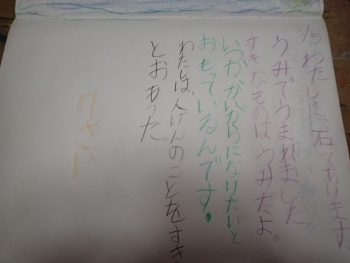 わたしは、石であります
うみでうまれました
すきなものはうみだよ。
いつか
になりたいと
おもっているんです。
わたしは、人げんのことをすき
とおもった。